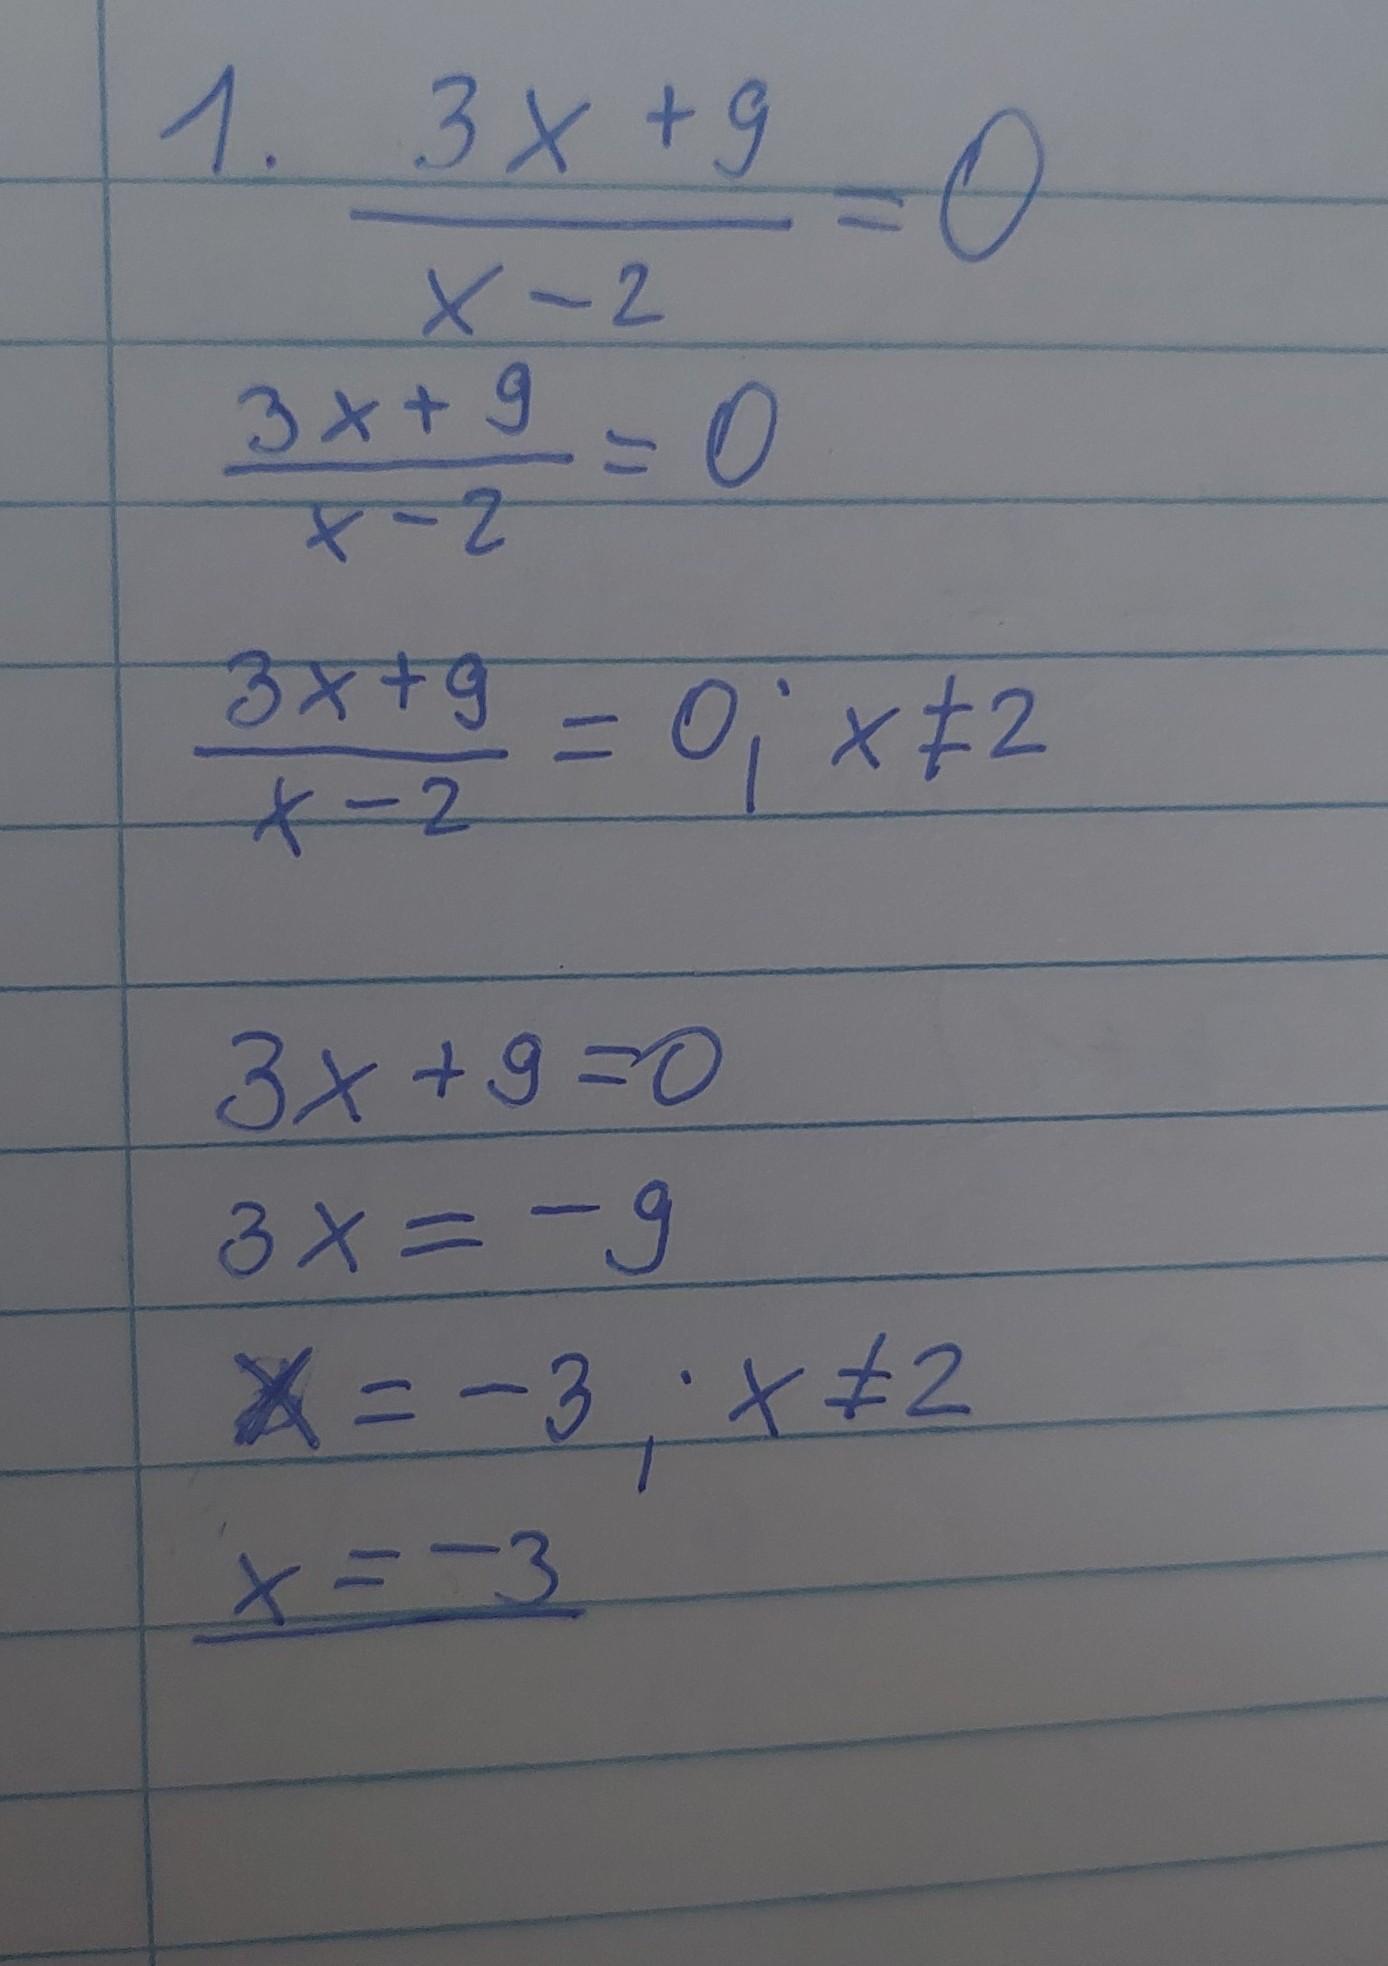 1. (3x + 9)/(x - 2) = 0
(3x + 9)/(x - 2) = 0
(3x + 9)/(x - 2) = 0; x ≠ 2
3x + 9 = 0
3x = -9
x = -3; x ≠ 2
x = -3